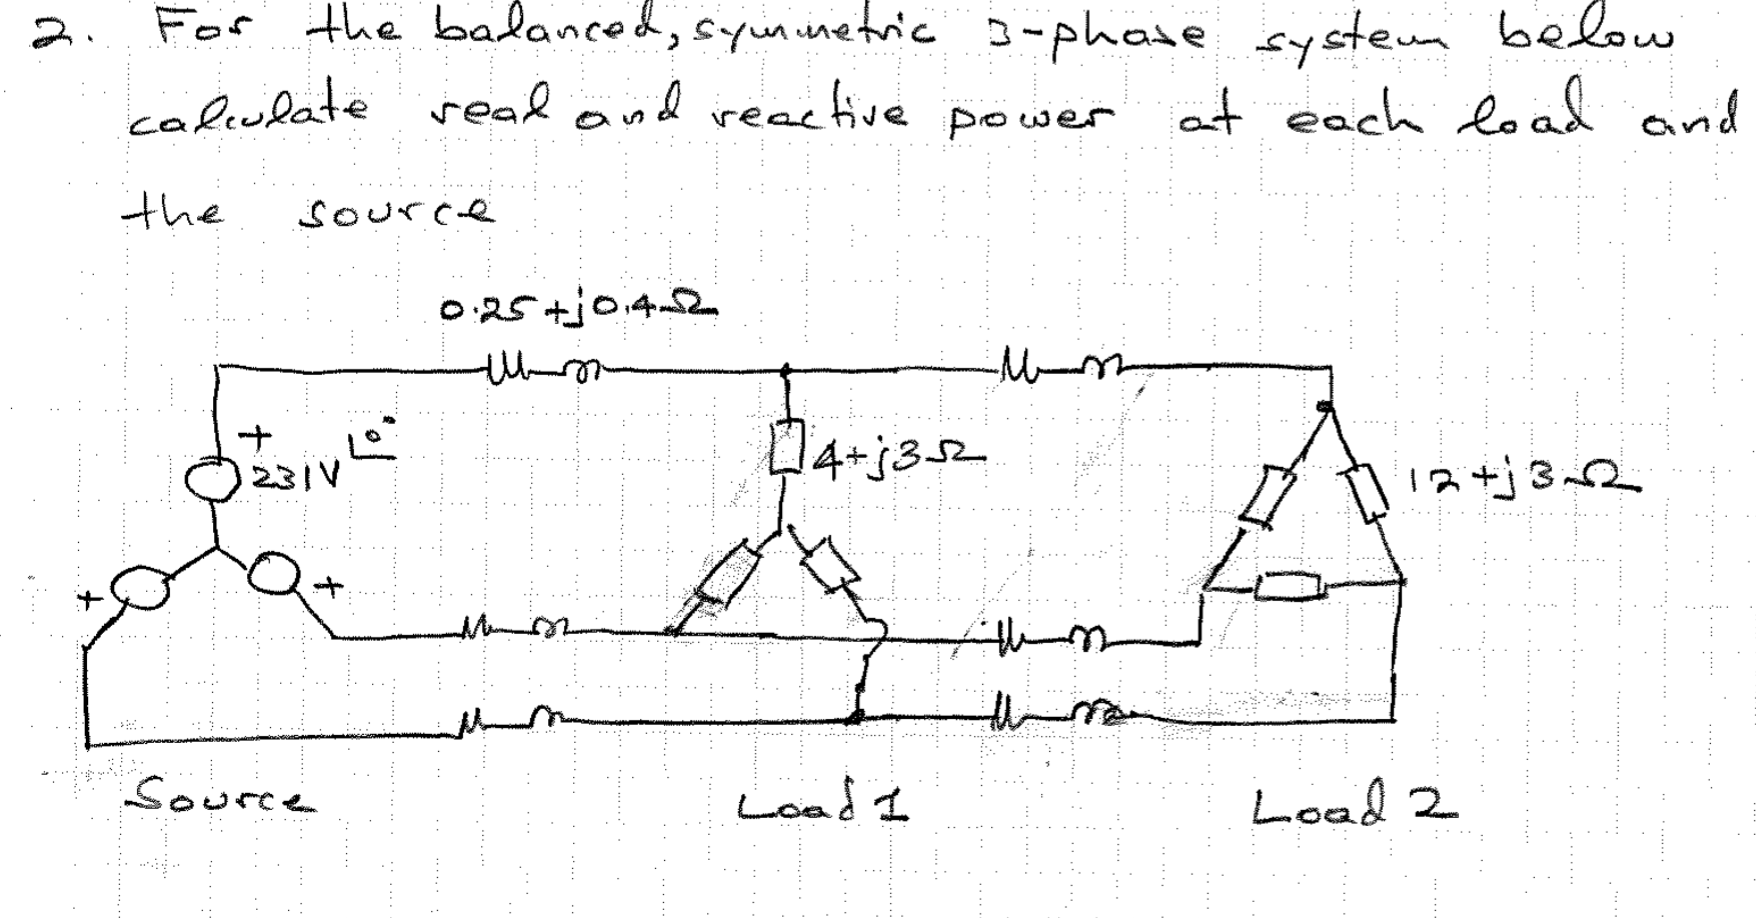 2. For the balanced, symmetric 3-phase system below
calculate real and reactive power at each load and
the source
0.25+j0.4Ω
+
231V
∠0°
4+j3Ω
12+j3Ω
+
+
Source
Load 1
Load 2